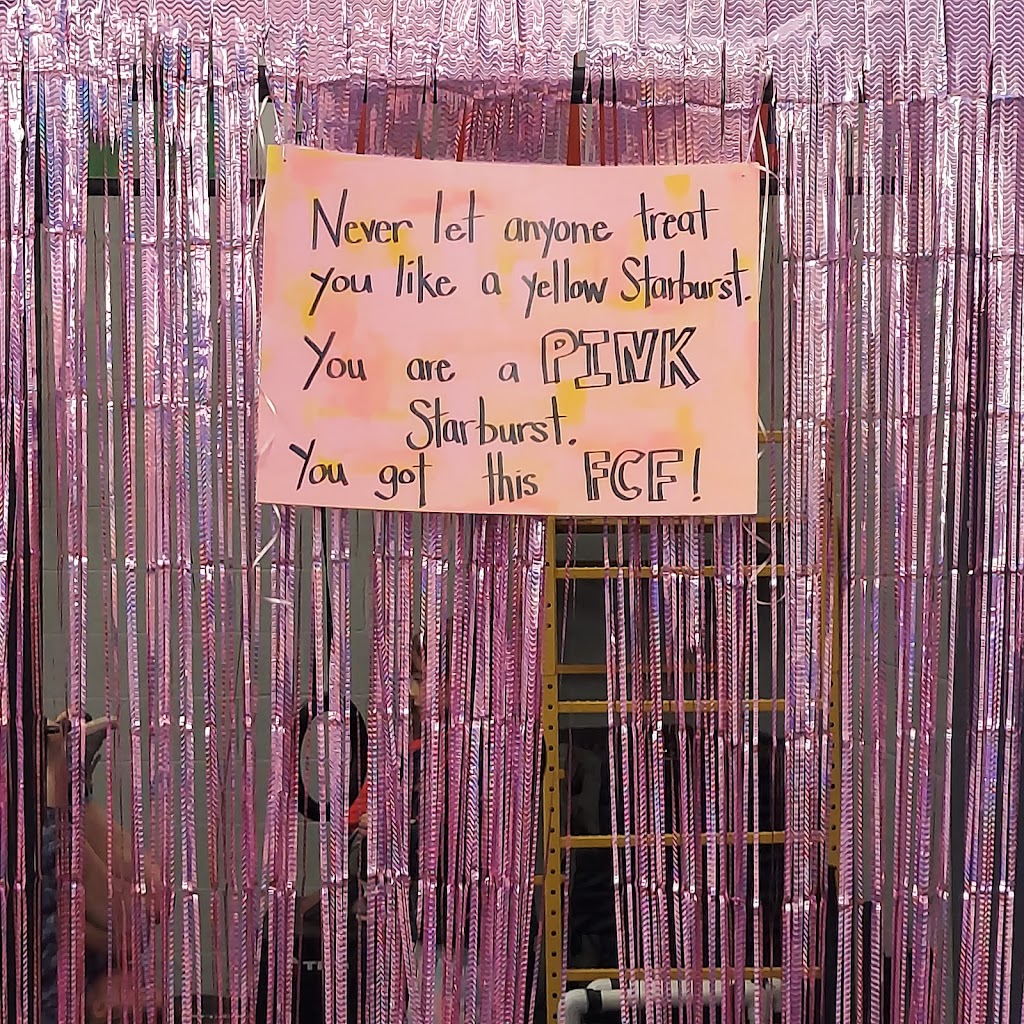 Never let anyone treat
you like a yellow Starburst.
You are a PINK
Starburst.
You got this FCF!